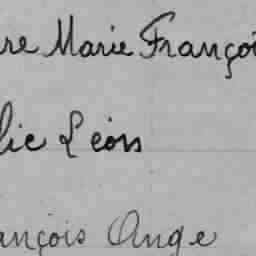 re Marie Françoi
lie Léon
ançois Ange